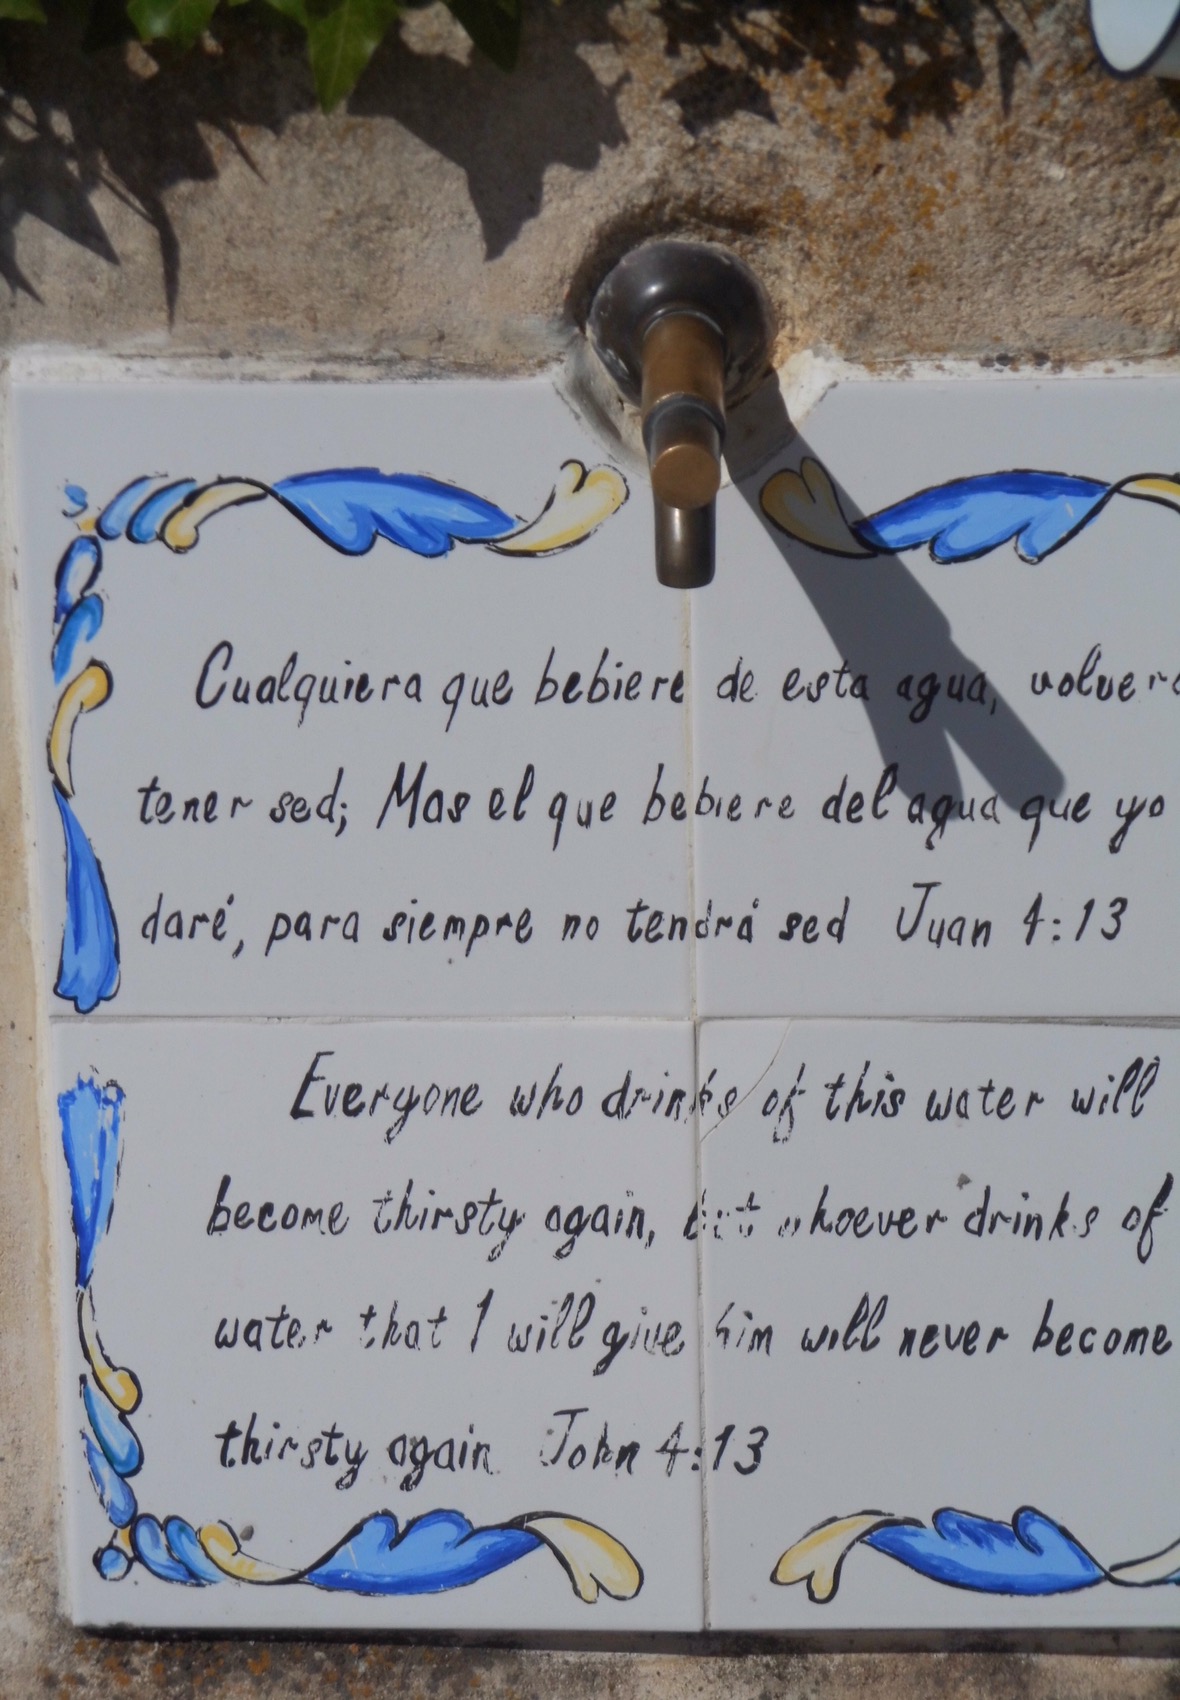 Cualquiera que bebiere de esta agua, volverá
tener sed; Mas el que bebiere del agua que yo
daré, para siempre no tendrá sed Juan 4:13
Everyone who drinks of this water will
become thirsty again, but whoever drinks of
water that I will give him will never become
thirsty again John 4:13